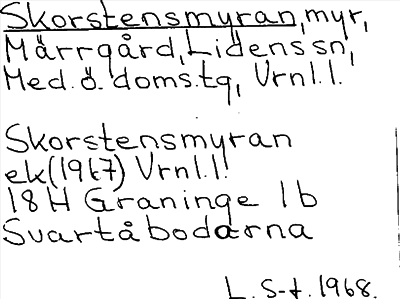 Skorstensmyran, myr,
Märrgård, Lidens sn,
Med. ö. doms.tg, Vrnl.l.
Skorstensmyran
ek (1967) Vrnl.l.
18H Graninge 1b
Svartåbodarna
L. S-t. 1968.